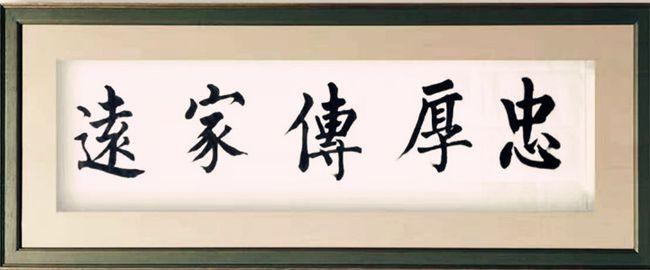 忠厚傳家遠